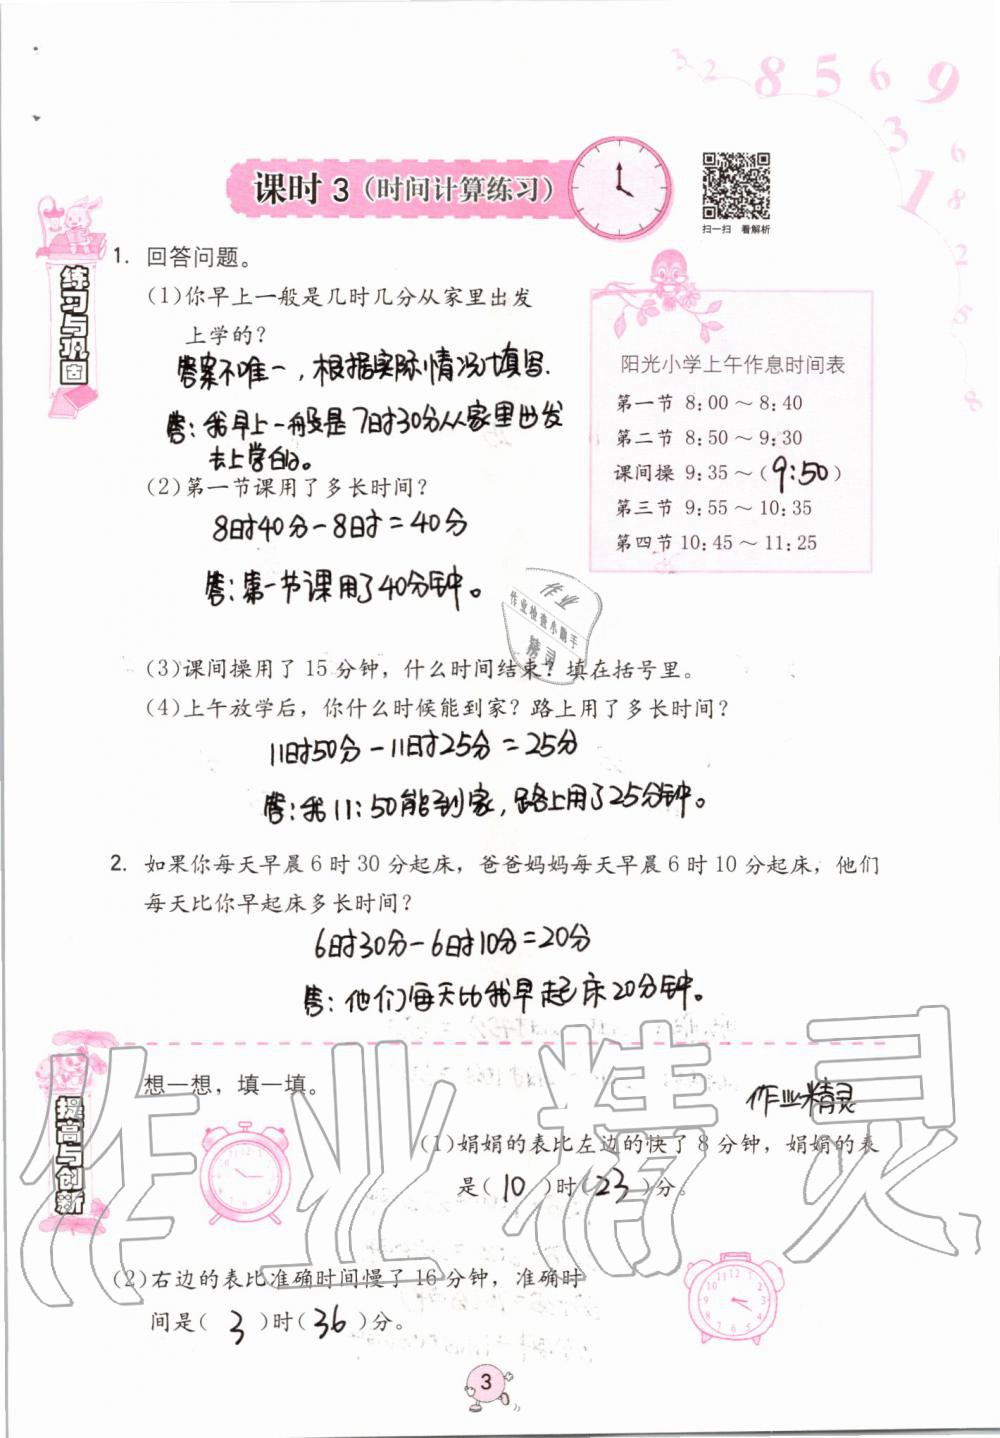 3 2 8 5 6 9
3 6
1 8
2
5
8
课时 3（时间计算练习）
扫一扫 看解析
练习与巩固
1. 回答问题。
(1)你早上一般是几时几分从家里出发
上学的?
答案不唯一，根据实际情况计填写.
答:我早上一般是7时30分从家里出发
去上学的。
(2)第一节课用了多长时间?
8时40分－8时＝40分
答:第一节课用了40分钟。
阳光小学上午作息时间表
第一节 8:00～8:40
第二节 8:50～9:30
课间操 9:35～(9:50)
第三节 9:55～10:35
第四节 10:45～11:25
作业
作业检查小帮手
精灵
(3)课间操用了 15 分钟，什么时间结束? 填在括号里。
(4)上午放学后，你什么时候能到家? 路上用了多长时间?
11时50分－11时25分＝25分
答:我11:50能到家，路上用了25分钟。
2. 如果你每天早晨 6 时 30 分起床，爸爸妈妈每天早晨 6 时 10 分起床，他们
每天比你早起床多长时间?
6时30分－6时10分＝20分
答:他们每天比我早起床20分钟。
提高与创新
想一想，填一填。
作业精灵
作业精灵
(1)娟娟的表比左边的快了 8 分钟，娟娟的表
是( 10 )时( 23 )分。
(2)右边的表比准确时间慢了 16 分钟，准确时
间是( 3 )时( 36 )分。
3